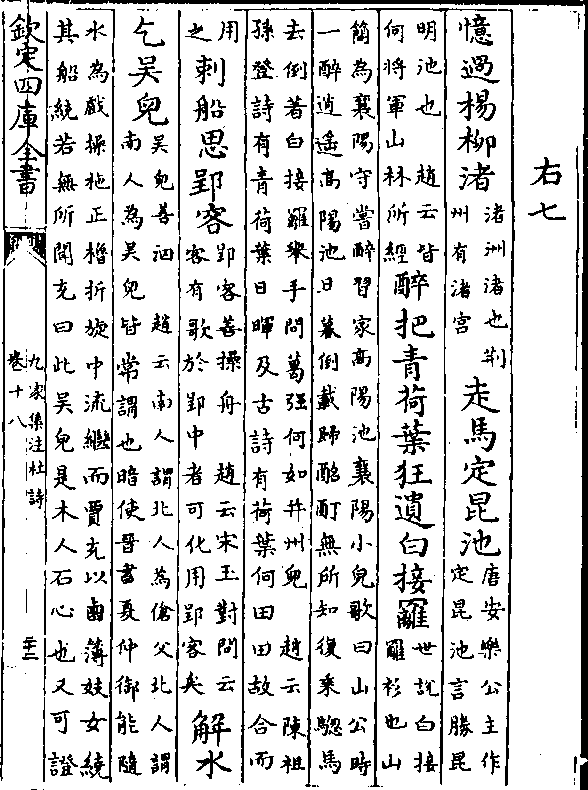 右七
憶過楊柳渚渚洲渚也荆州有渚宫走馬定昆池唐安樂公主作定昆池言勝昆
明池也 趙云皆何將軍山林所經醉把青荷葉狂遺白接䍦世說白接䍦衫也山
簡為襄陽守嘗醉習家髙陽池襄陽小兒歌曰山公時
一醉逍遥髙陽池日暮倒載歸酩酊無所知復乗驄馬
去倒著白接䍦舉手問葛强何如并州兒 趙云陳祖
孫登詩有青荷葉日暉及古詩有荷葉何田田故合而
用之刺船思郢客郢客善操舟 趙云宋玉對問云客有歌於郢中者可化用郢客矣解水
乞吳兒吳兒善泅 趙云南人謂北人為傖父北人謂南人為吳兒皆常謂也暗使晉書夏仲御能隨
水為戲操柂正櫓折旋中流繼而賈充以鹵簿妓女繞
其船統若無所聞充曰此吳兒是木人石心也又可證
欽定四庫全書
九家集注杜詩
卷十八
二十二